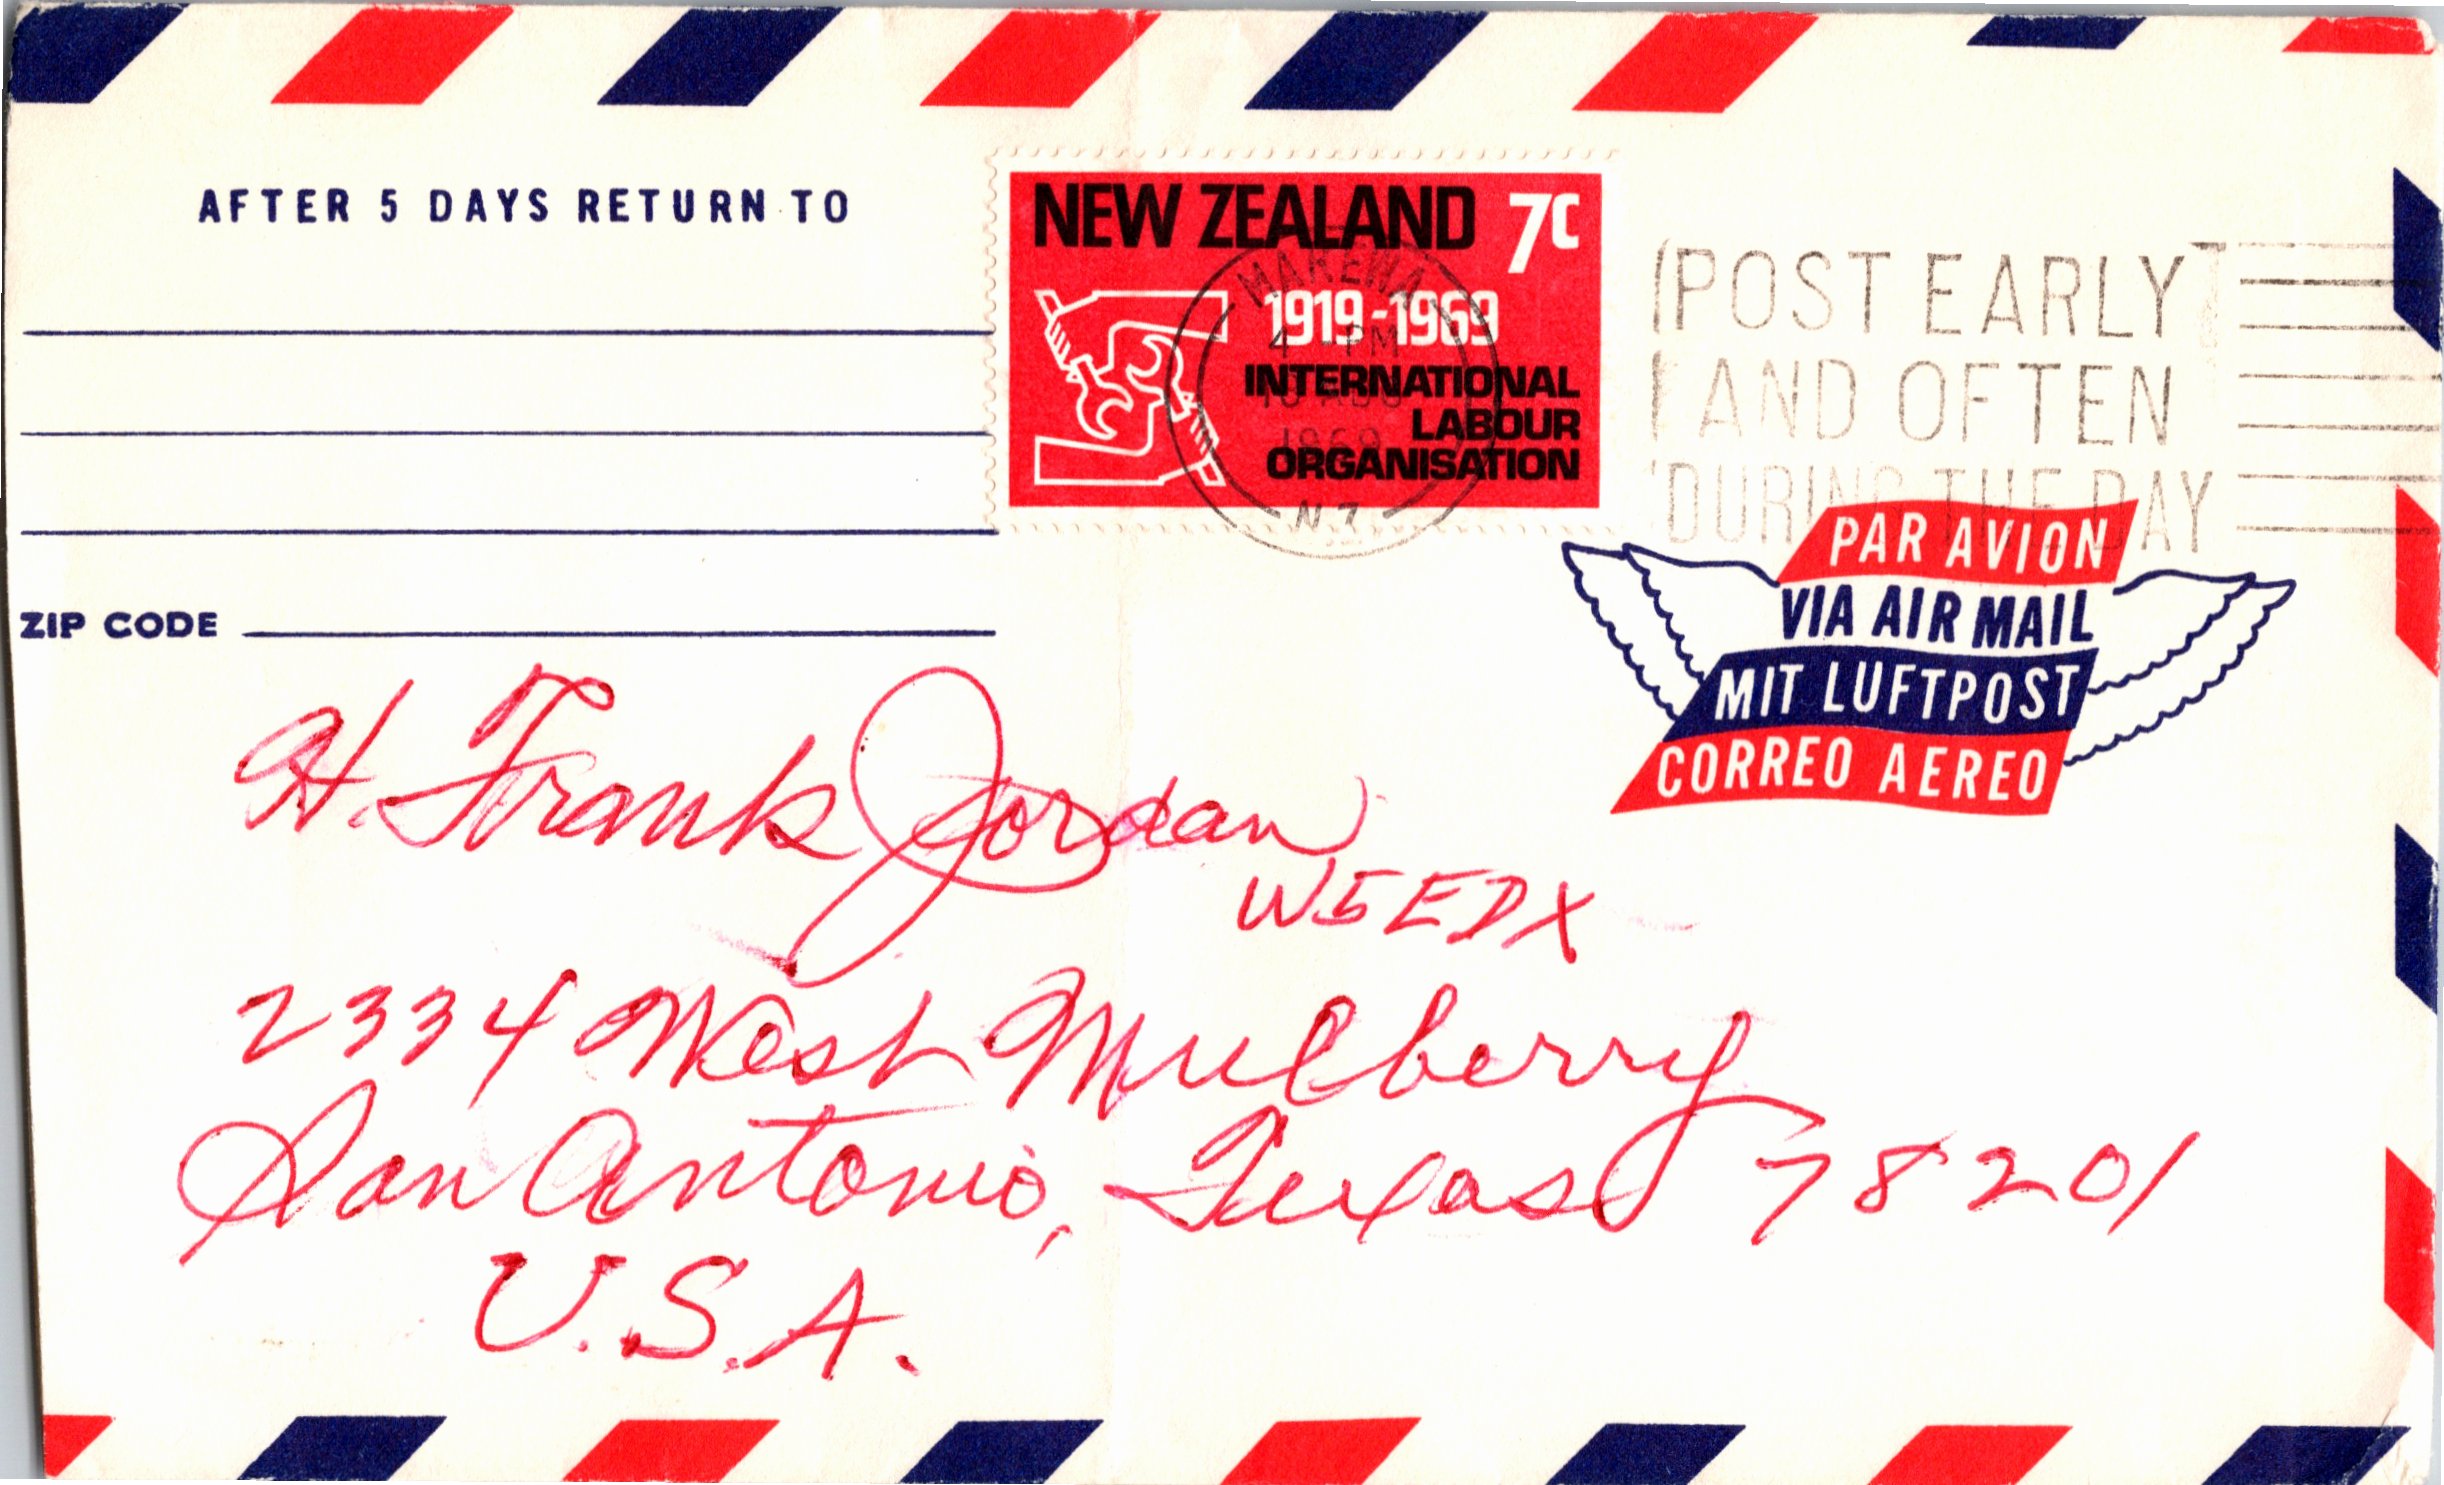 AFTER 5 DAYS RETURN TO
ZIP CODE
NEW ZEALAND 7c
1919-1969
INTERNATIONAL
LABOUR
ORGANISATION
4 - PM
AUG
1969
N.Z
POST EARLY
AND OFTEN
DURING THE DAY
PAR AVION
VIA AIR MAIL
MIT LUFTPOST
CORREO AEREO
H. Frank Jordan
W5EDX
2334 West Mulberry
San Antonio, Texas 78201
U.S.A.